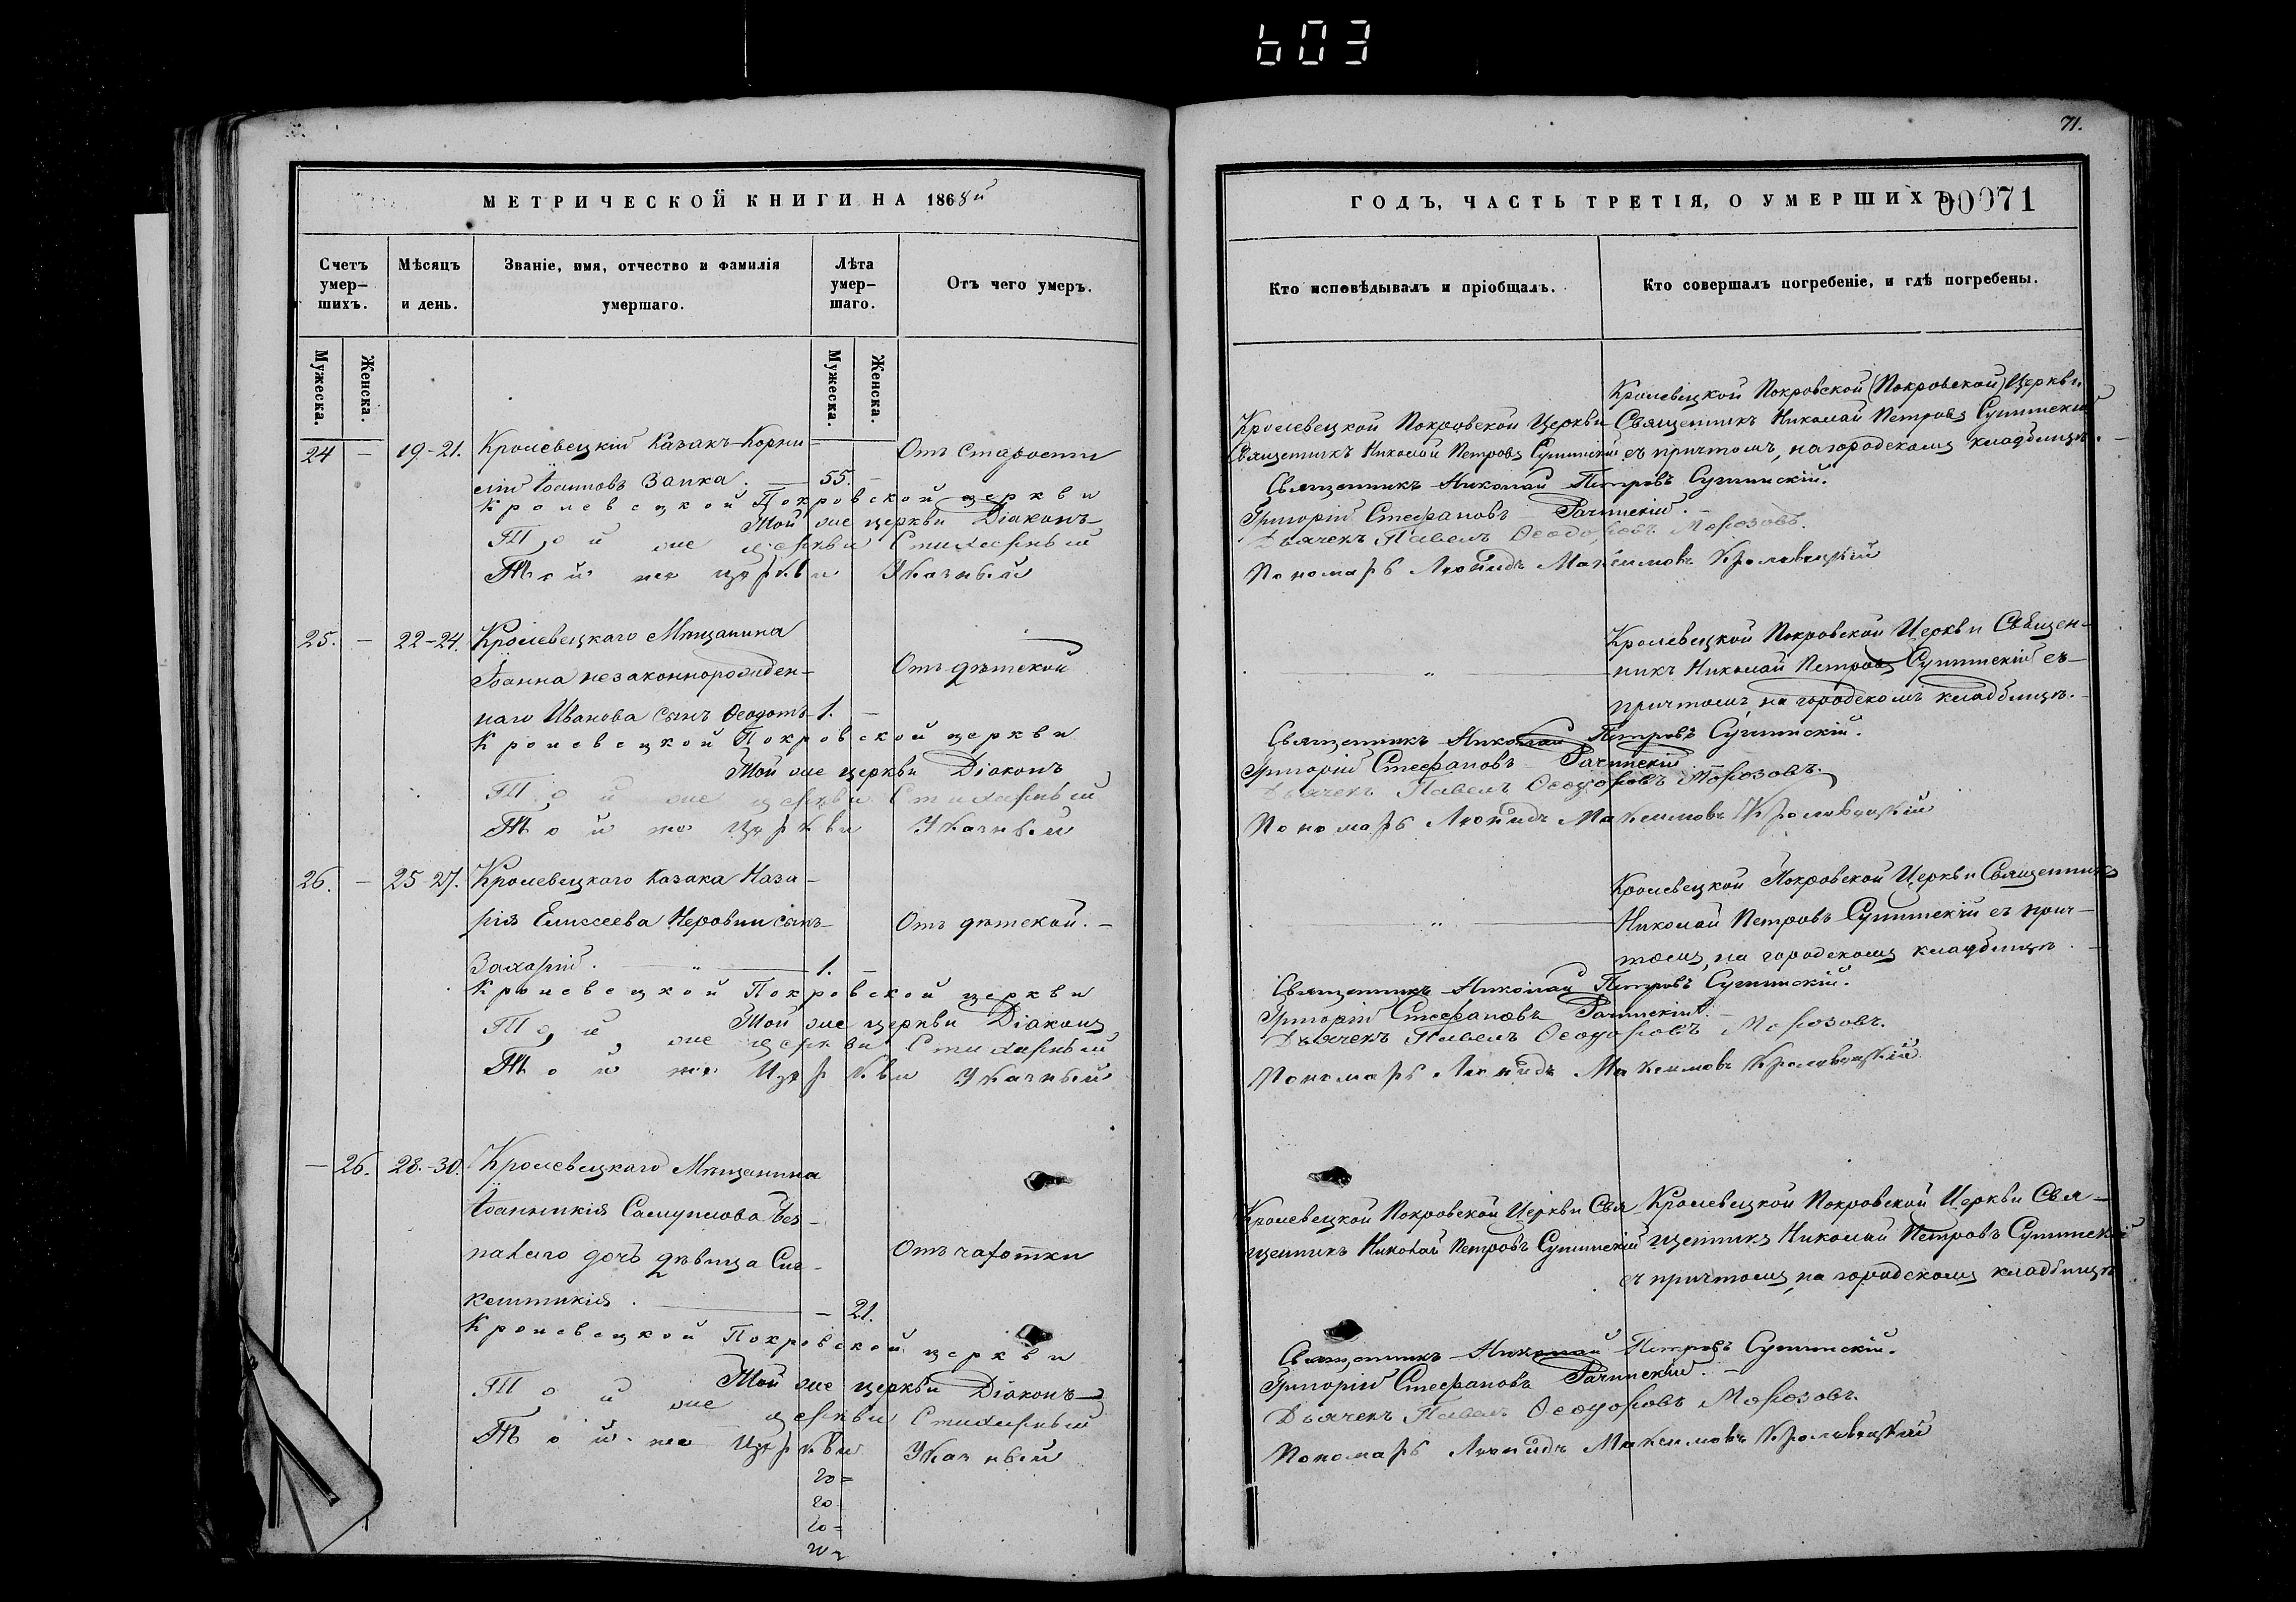 603
МЕТРИЧЕСКОЙ КНИГИ НА 1868й
Счетъ умер-шихъ.
Мѣсяцъ и день.
Званіе, имя, отчество и фамилія умершаго.
Лѣта умер-шаго.
Отъ чего умеръ.
Мужеска.
Женска.
Мужеска.
Женска.
24 — 19-21. Кролевецкій Казакъ Корни- Отъ старости
лій Іоанновъ Запка. — 55. —
Кролевецкой Покровской церкви
Той же церкви Діаконъ
Той же церкви Стихарный
Той же церкви Указный
25. — 22-24. Кролевецкаго Мѣщанина
Іоанна незаконнорожден- Отъ дѣтской
наго Иванова сынъ Ѳеодотъ 1. —
Кролевецкой Покровской церкви
Той же церкви Діаконъ
Той же церкви Стихарный
Той же Церкви Указный
26. — 25-27. Кролевецкаго Казака Наза-
рія Елисеева сынъ Отъ дѣтской. —
Захарій. — " — 1. —
Кролевецкой Покровской церкви
Той же церкви Діаконъ
Той же церкви Стихарный
Той же Церкви Указный
— 26. 28.-30. Кролевецкаго Мѣщанина
Іоанникія Самуилова Без-
палаго дочь дѣвица Син- Отъ чахотки
клитикія. — — 21.
Кролевецкой Покровской церкви
Той же церкви Діаконъ
Той же церкви Стихарный
Той же Церкви Указный
20=
20
20=
20=
71.
ГОДЪ, ЧАСТЬ ТРЕТІЯ, О УМЕРШИХЪ.
00071
Кто исповѣдывалъ и пріобщалъ.
Кто совершалъ погребеніе, и гдѣ погребены.
Кролевецкой Покровской (Покровской) Церкви
Кролевецкой Покровской Церкви Священникъ Николай Петровъ
Священникъ Николай Петровъ съ причтомъ, на городскомъ кладбищѣ. —
Священникъ Николай Петровъ
Григорій Стефановъ
Дьячекъ Павелъ Ѳеодоровъ Морозовъ.
Пономарь Леонидъ Максимовъ Кролевецкій
Кролевецкой Покровской Церкви Священ-
— " — никъ Николай Петровъ съ
причтомъ, на городскомъ кладбищѣ. —
Священникъ Николай Петровъ
Григорій Стефановъ
Дьячекъ Павелъ Ѳеодоровъ Морозовъ.
Пономарь Леонидъ Максимовъ Кролевецкій
Кролевецкой Покровской Церкви Священникъ
— " — Николай Петровъ съ прич-
томъ, на городскомъ кладбищѣ. —
Священникъ Николай Петровъ
Григорій Стефановъ
Дьячекъ Павелъ Ѳеодоровъ Морозовъ.
Пономарь Леонидъ Максимовъ Кролевецкій
Кролевецкой Покровской Церкви Свя- Кролевецкой Покровской Церкви Свя-
щенникъ Николай Петровъ щенникъ Николай Петровъ
съ причтомъ, на городскомъ кладбищѣ
Священникъ Николай Петровъ
Григорій Стефановъ
Дьячекъ Павелъ Ѳеодоровъ Морозовъ.
Пономарь Леонидъ Максимовъ Кролевецкій